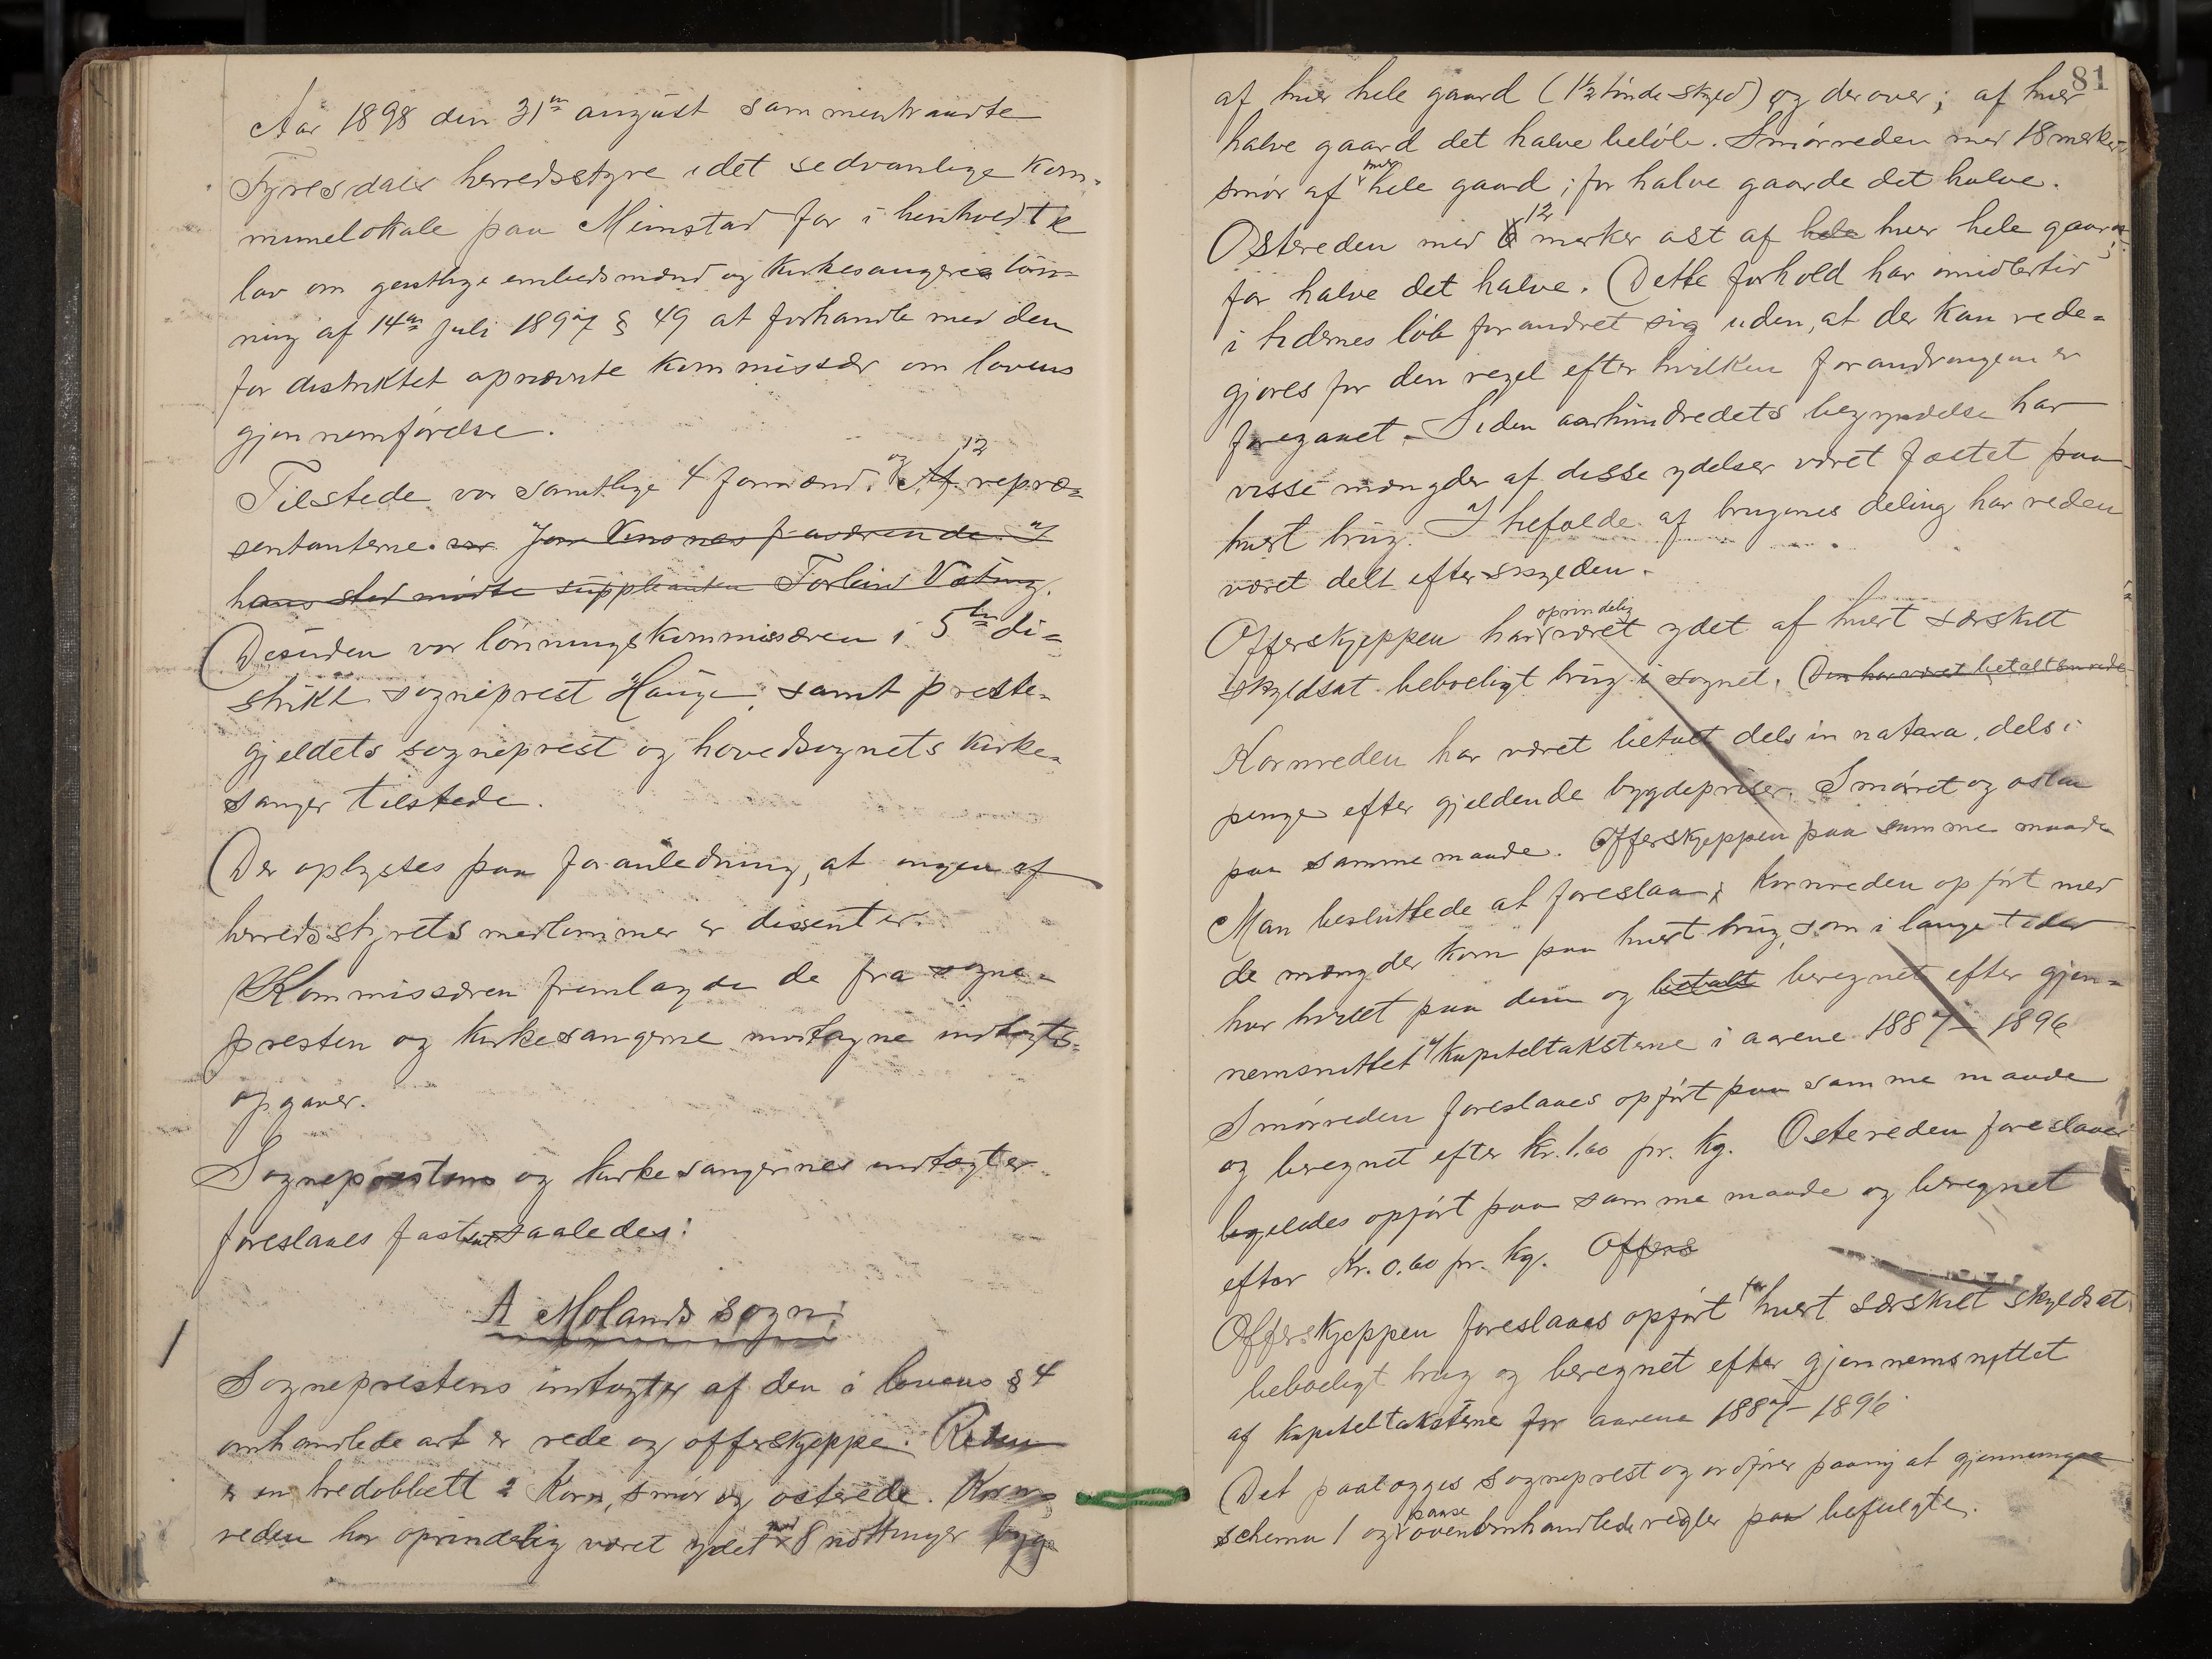 Aar 1898 den 31te august sammentraadte
Tyresdals herredsstyre i det sedvanlige kom-
munelokale paa Meimstad for i henhold til
lov om geistlige embedsmænd og kirkesangeres løn-
ning af 14de juli 1897 § 49 at forhandle med den
for distriktet opnævnte kommissær om lovens
gjennemførelse.
Tilstede var samtlige 4 formænd. og 12 repræ-
sentanterne. var fraværende. I
hans sted mødte suppleanten
Desuden var lønningskommissæren i 5te di-
strikt sogneprest Hauge, samt preste-
gjeldets sogneprest og hovedsognets kirke-
sanger tilstede.
Der oplystes paa foranledning, at ingen af
herredsstyrets medlemmer er dissenter.
Kommissæren fremlagde de fra sogne-
presten og kirkesangerne modtagne indtægts-
opgaver.
Sogneprestens og kirkesangernes indtægter
foreslaaes fastsat saaledes:
A Molands sogn:
Sogneprestens indtægter af den i lovens § 4
omhandlede art er rede og offerskjeppe. Reden
er en tredobbelt: Korn, smør og osterede. Korn-
reden har oprindelig været ydet med 8 nøttinger byg
81
af hver hele gaard (1 1/2 tønde skyld) og derover; af hver
halve gaard det halve beløb. Smørreden med 18 merker
smør af hver hele gaard; for halve gaarde det halve.
Ostereden med 12 merker ost af hele hver hele gaard;
for halve det halve. Dette forhold har imidlertid
i tidernes løb forandret sig uden, at der kan rede-
gjøres for den regel efter hvilken forandringen er
foregaaet. Siden aarhundredets begyndelse har
visse mængder af disse ydelser været fæstet paa
hvert brug. I tilfælde af brugenes deling har reden
været delt efter skylden.
Offerskjeppen har oprindelig været ydet af hvert særskilt
skyldsat beboeligt brug i sognet. Den har været betalt som rede
Kornreden har været betalt dels in natura, dels i
penge efter gjeldende bygdepriser. Smørret og osten
paa samme maade. Offerskjeppen paa samme maade
Man besluttede at foreslaa: Kornreden opført med
de mængder korn paa hvert brug, som i lange tider
har hvilet paa dem og betalt beregnet efter gjen-
nemsnittet af kapiteltaksterne i aarene 1887 – 1896
Smørreden foreslaaes opført paa samme maade
og beregnet efter Kr. 1.60 pr. kg. Ostereden foreslaaes
ligeledes opført paa samme maade og beregnet
efter Kr. 0.60 pr. kg. Offers
Offerskjeppen foreslaaes opført for hvert særskilt skyldsat
beboeligt brug og beregnet efter gjennemsnittet
af kapiteltaksterne for aarene 1887 – 1896
Det paalægges sogneprest og ordfører paany at gjennemgaa
schema 1 og paase ovenomhandlede regler paa befulgte.